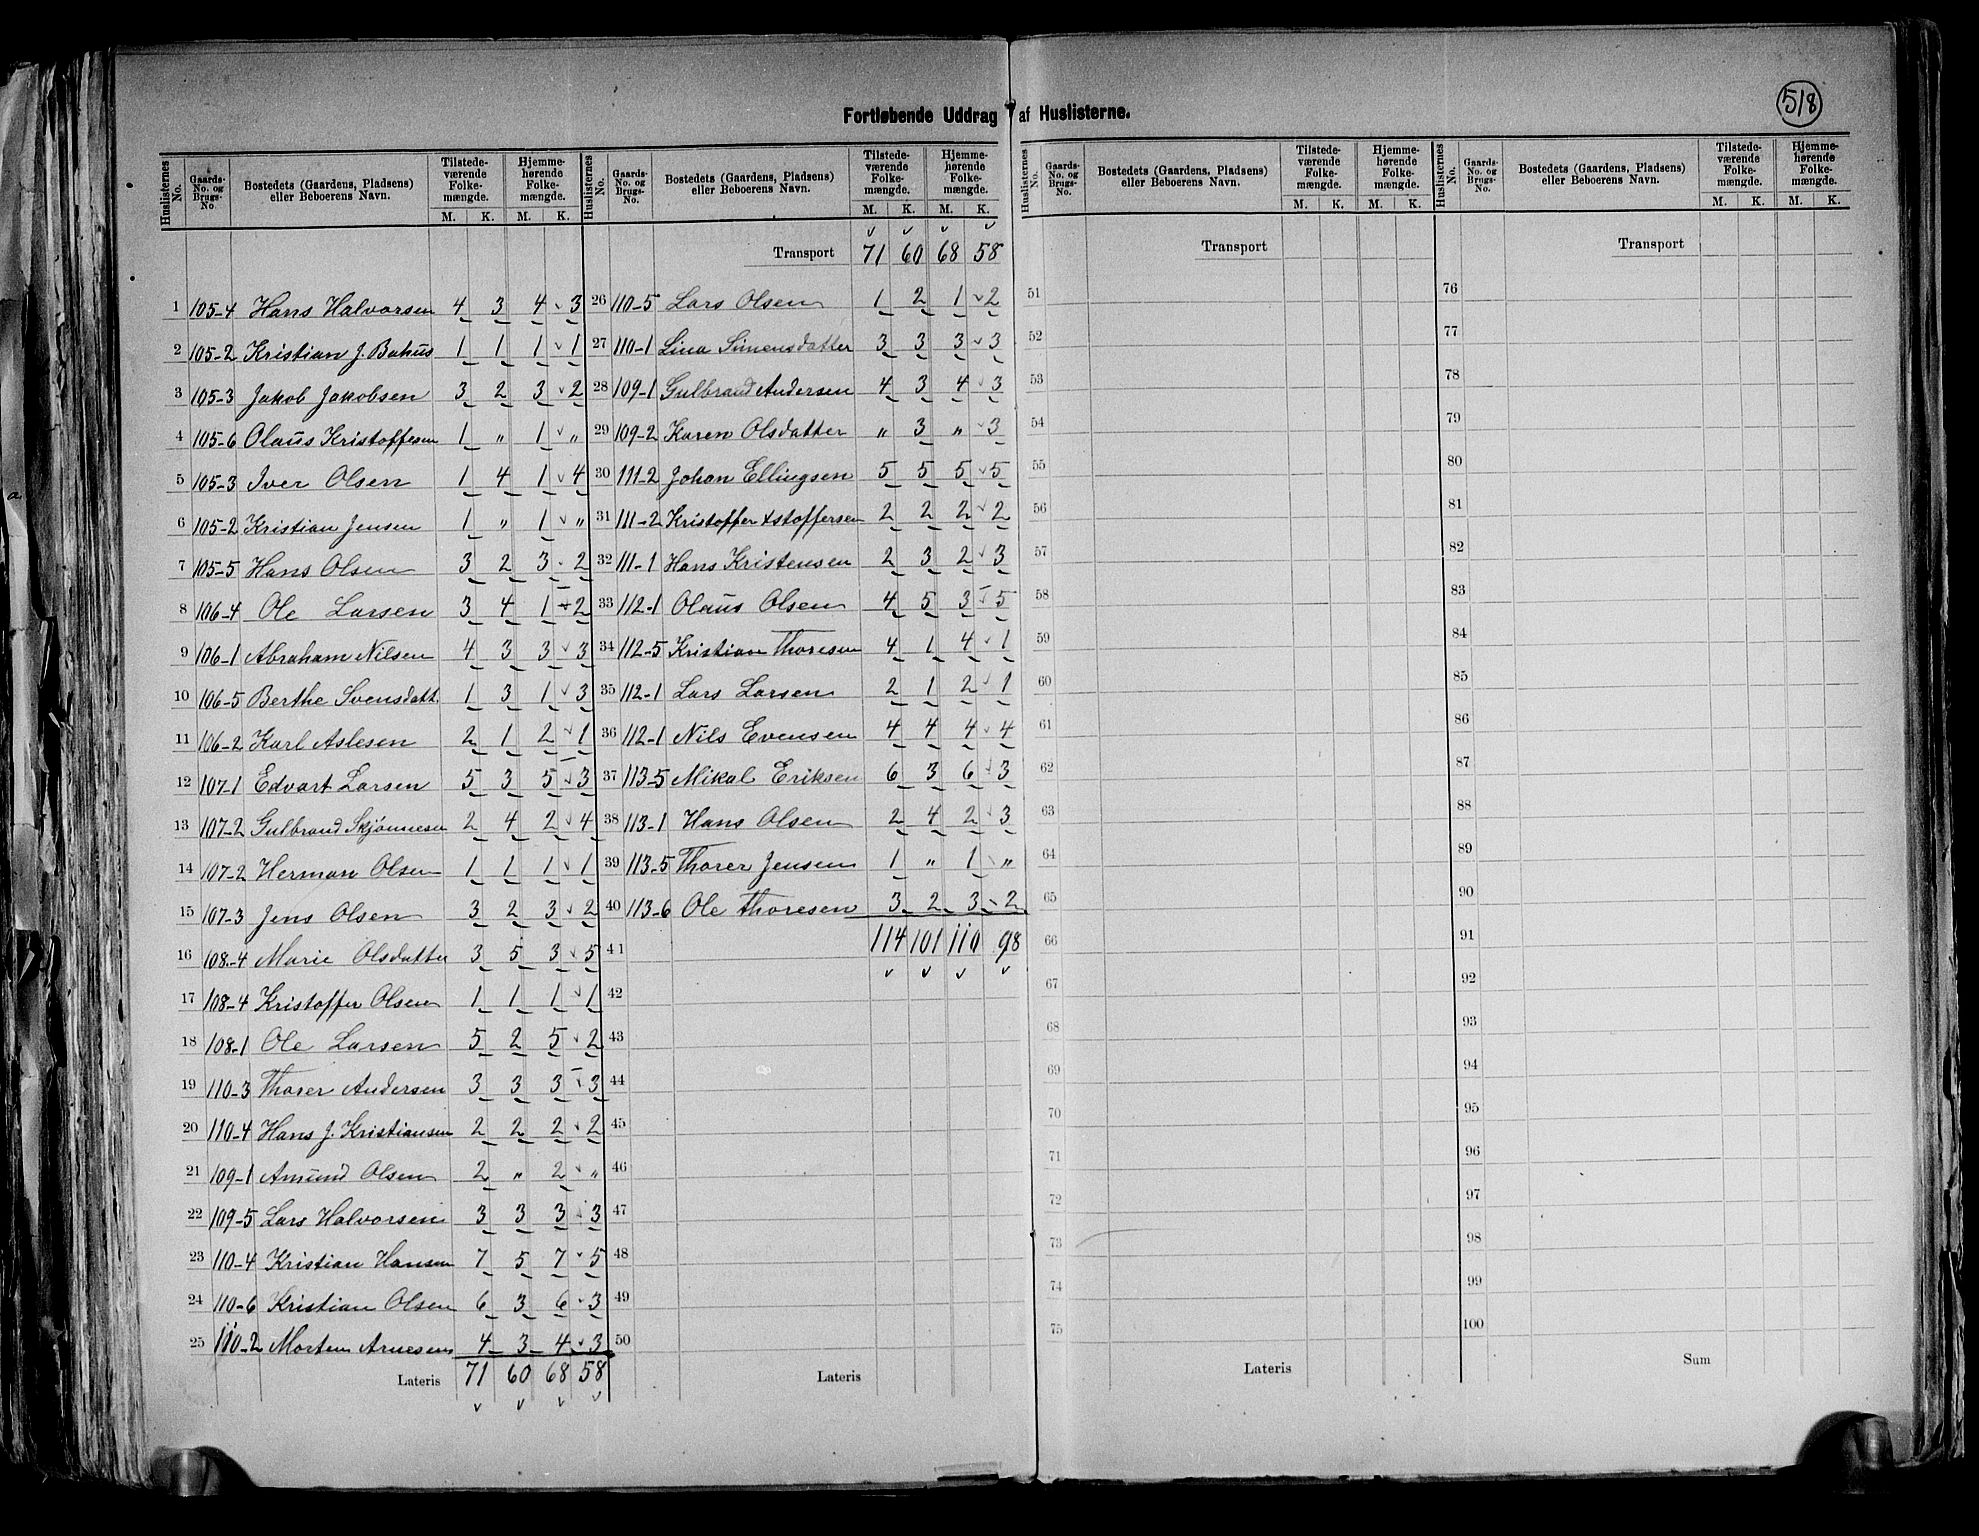 518
Fortløbende Uddrag af Huslisterne.
Huslisternes No. Gaards-No. og Brugs-No. Bostedets (Gaardens, Pladsens) eller Beboerens Navn. Tilstedeværende Folkemængde. M. K. Hjemmehørende Folkemængde. M. K.
1 105-4 Hans Halvorsen 4 3 4 3
2 105-2 Kristian J. Bahus 1 1 1 1
3 105-3 Jakob Jakobsen 3 2 3 2
4 105-6 Olaus Kristoffesen 1 " 1 "
5 105-3 Iver Olsen 1 4 1 4
6 105-2 Kristian Jensen 1 " 1 "
7 105-5 Hans Olsen 3 2 3 2
8 106-4 Ole Larsen 3 4 1 2
9 106-1 Abraham Nilsen 4 3 3 3
10 106-5 Berthe Svensdatt. 1 3 1 3
11 106-2 Karl Aslesen 2 1 2 1
12 107-1 Edvart Larsen 5 3 5 3
13 107-2 Gulbrand Skjønnesen 2 4 2 4
14 107-2 Herman Olsen 1 1 1 1
15 107-3 Jens Olsen 3 2 3 2
16 108-4 Marie Olsdatter 3 5 3 5
17 108-4 Kristoffer Olsen 1 1 1 1
18 108-1 Ole Larsen 5 2 5 2
19 110-3 Thorer Andersen 3 3 3 3
20 110-4 Hans J. Kristiansen 2 2 2 2
21 109-1 Amund Olsen 2 " 2 "
22 109-5 Lars Halvorsen 3 3 3 3
23 110-4 Kristian Hansen 7 5 7 5
24 110-6 Kristian Olsen 6 3 6 3
25 110-2 Morten Arnesen 4 3 4 3
Lateris 71 60 68 58
Huslisternes No. Gaards-No. og Brugs-No. Bostedets (Gaardens, Pladsens) eller Beboerens Navn. Tilstedeværende Folkemængde. M. K. Hjemmehørende Folkemængde. M. K.
Transport 71 60 68 58
26 110-5 Lars Olsen 1 2 1 2
27 110-1 Lina Simensdatter 3 3 3 3
28 109-1 Gulbrand Andersen 4 3 4 3
29 109-2 Karen Olsdatter " 3 " 3
30 111-2 Johan Ellingsen 5 5 5 5
31 111-2 Kristoffer xstoffersen 2 2 2 2
32 111-1 Hans Kristensen 2 3 2 3
33 112-1 Olaus Olsen 4 5 3 5
34 112-5 Kristian Thoresen 4 1 4 1
35 112-1 Lars Larsen 2 1 2 1
36 112-1 Nils Evensen 4 4 4 4
37 113-5 Mikal Eriksen 6 3 6 3
38 113-1 Hans Olsen 2 4 2 3
39 113-5 Thorer Jensen 1 " 1 "
40 113-6 Ole Thoresen 3 2 3 2
41 114 101 110 98
42
43
44
45
46
47
48
49
50
Lateris
Huslisternes No. Gaards-No. og Brugs-No. Bostedets (Gaardens, Pladsens) eller Beboerens Navn. Tilstedeværende Folkemængde. M. K. Hjemmehørende Folkemængde. M. K.
Transport
51
52
53
54
55
56
57
58
59
60
61
62
63
64
65
66
67
68
69
70
71
72
73
74
75
Lateris
Huslisternes No. Gaards-No. og Brugs-No. Bostedets (Gaardens, Pladsens) eller Beboerens Navn. Tilstedeværende Folkemængde. M. K. Hjemmehørende Folkemængde. M. K.
Transport
76
77
78
79
80
81
82
83
84
85
86
87
88
89
90
91
92
93
94
95
96
97
98
99
100
Sum